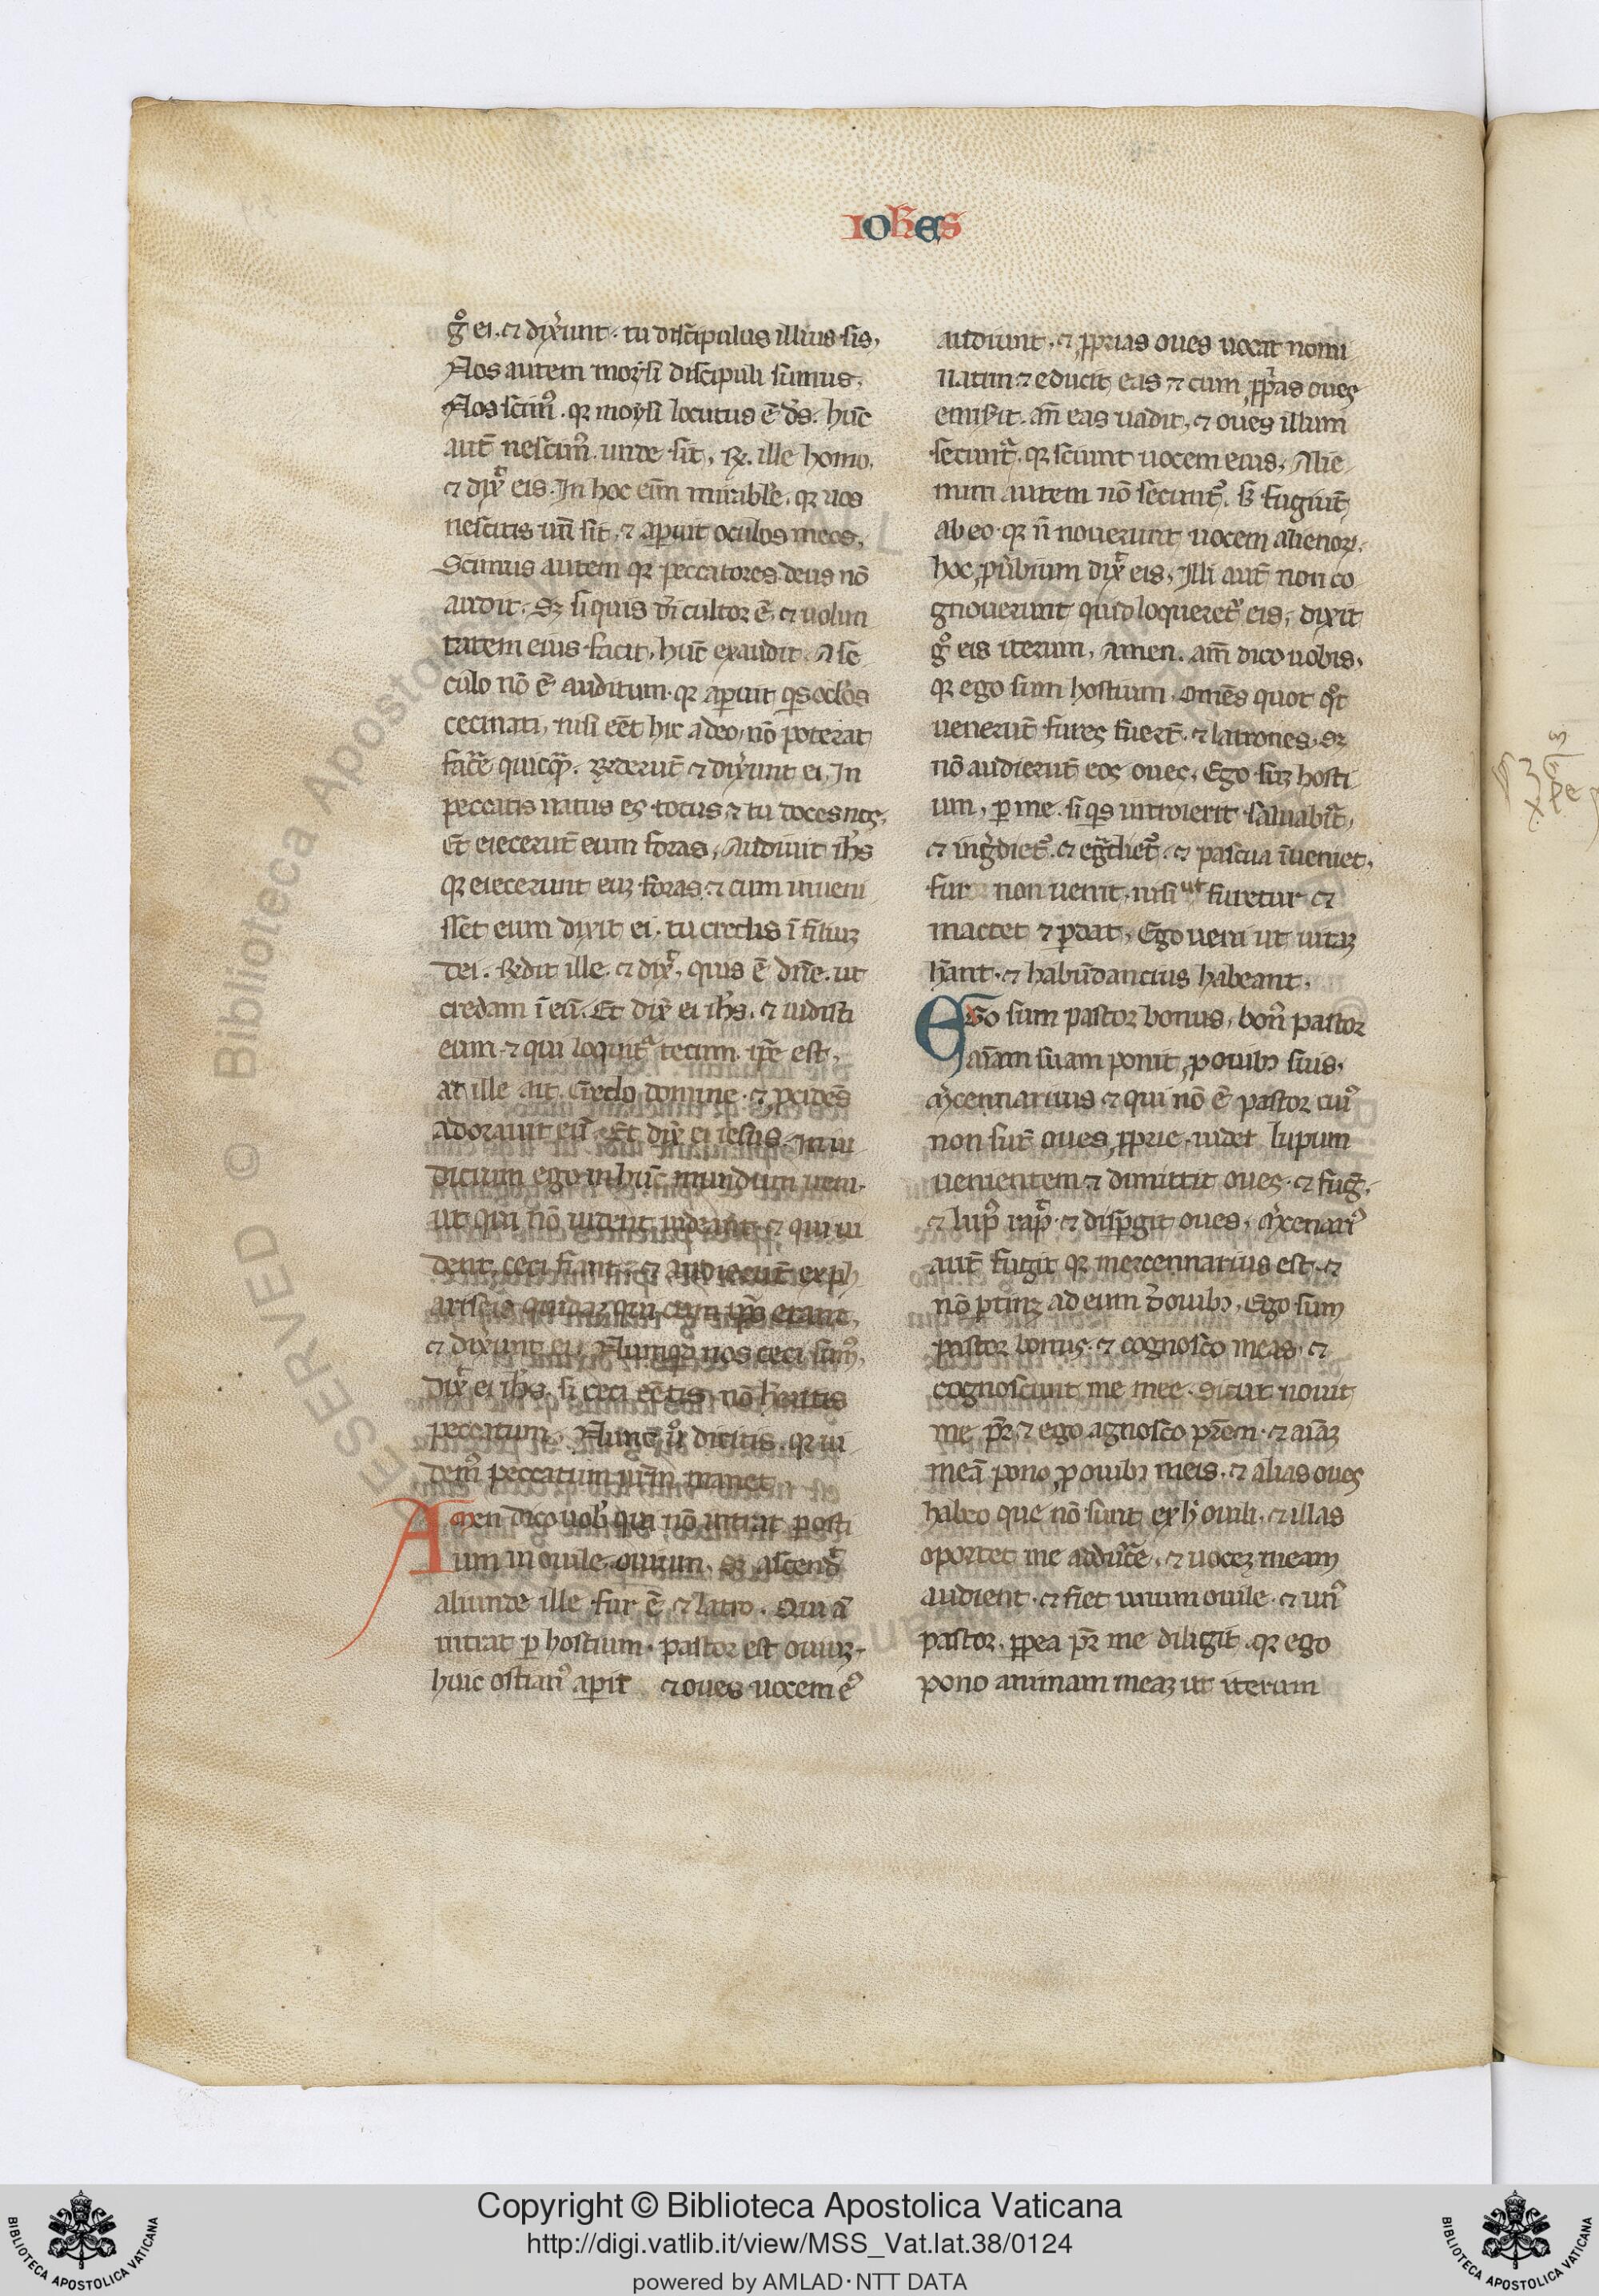 IOHES
gº ei. ⁊ dix̾unt. tu discipulus illius sis,
Nos autem moysi discipuli sumus,
Nos scimꝰ. qr moysi locutus ē ds̄. hūc
aut̄ nescimꝰ unde sit, R̸. ille homo,
⁊ dix̾ eis. In hoc eīm mirabile, qr uos
nescitis un̄ sit, ⁊ aꝑuit oculos meos,
Scimus autem qr peccatores deus nō
audit, Sꝫ si quis dī cultor ē, ⁊ uolun
tatem eius facit, hūc exaudit. A se
culo nō ē auditum. qr aꝑuit qͥs oclōs
ceci nati, nisi eēt hic a deo, nō poterat
facer̄e quicqͣ. R̸nderut̄ ⁊ dix̾unt ei, In
peccatis natus es totus, ⁊ tu doces nos,
Et eiecerut̄ eum foras, Audiuit ih̄s
qr eiecerunt euꝫ foras. ⁊ cum inueni
sset eum dixit ei. tu credis ī filiuꝫ
dei. R̸ndit ille. ⁊ dix̾, quis ē dn̄e. ut
credam ī eū. Et dix̾ ei ih̄s. ⁊ uidisti
eum. ⁊ qui loquitᷣ tecum. ip̄e est,
at ille ait, Credo domine. ⁊ ꝓcidēs
adorauit eū. Et dix̾ ei iesus. In iu
dicium ego in hūc mundum ueni.
ut qui nō uident uideant. ⁊ qui ui
dent, ceci fiant. ⁊ audierut̄ ex ph
ariseis quidaꝫ qui cum ip̄o erant,
⁊ dix̾unt ei, Numqͥd nos ceci sumꝰ,
dix̾ ei ih̄s. si ceci eēētis, nō h̄eretis
peccatum, Nunc ū̊ dicitis. qr ui
demꝰ peccatum ur̄m manet
Amen dico uob̄ qui nō intrat ꝑ osti
um in ouile ouium, Sꝫ ascend̾
aliunde ille fur ē ⁊ latro. Qui ā
intrat ꝑ hostium. pastor est ouiuꝫ.
huic ostiariꝰ aꝑit ⁊ oues uocem eꝰ
audiunt. ⁊ ꝓprias oues uocat nomi
natim ⁊ educit eas ⁊ cum ꝓpͥas oues
emisit. an̄ eas uadit, ⁊ oues illum
secuntᷣ. qr sciunt uocem eius, Alie
num autem nō secuntᷣ. sꝫ fugiūt
ab eo. qr n̄ nouerunt uocem alienoꝝ.
hoc ꝓu̾bium dix̾ eis, Illi aut̄ non co
gnouerunt quid loqueretᷣ eis, dixit
gº eis iterum, Amen. am̄ dico uobis,
qr ego sum hostium. Omēs quot qͦt
uenerut̄ fures fuert̄. ⁊ latrones, Sꝫ
nō audierut̄ eos oues, Ego suꝫ hosti
um, ꝑ me. si qͥs introierit saluabitᷣ,
⁊ ingͣdietᷣ. ⁊ egͣdietᷣ. ⁊ pascua īueniet,
fur non uenit. nisi ut furetur ⁊
mactet ⁊ ꝑdat, Ego ueni ut uitaꝫ
h̄ant. ⁊ habūdancius habeant.
Ego sum pastor bonus, bonꝰ pastor
aīam suam ponit ꝓ ouibꝫ suis,
m̾cennarius ⁊ qui nō ē pastor cuiꝰ
non sut̄ oues ꝓprie, uidet lupum
uenientem ⁊ dimittit oues. ⁊ fug̾.
⁊ lupꝰ rapͥ ⁊ disꝑgit oues, m̾cenariꝰ
aut̄ fugit qr mercennarius est. ⁊
nō ꝑtinꝫ ad eum d̄ ouibꝫ, Ego sum
pastor bonus. ⁊ cognosco meas, ⁊
cognoscunt me mee. Sicut nouit
me pr̄ ⁊ ego agnosco pr̄em. ⁊ aīaꝫ
meā pono ꝓ ouibꝫ meis. ⁊ alias oues
habeo que nō sunt ex h̊ ouili, ⁊ illas
oportet me adducer̄e, ⁊ uoceꝫ meam
audient. ⁊ fiet unum ouile. ⁊ unꝰ
pastor, ꝓpea pr̄ me diligit qr ego
pono animam meaꝫ ut iterum
Copyright © Biblioteca Apostolica Vaticana
http://digi.vatlib.it/view/MSS_Vat.lat.38/0124
powered by AMLAD·NTT DATA
BIBLIOTECA APOSTOLICA VATICANA
BIBLIOTECA APOSTOLICA VATICANA